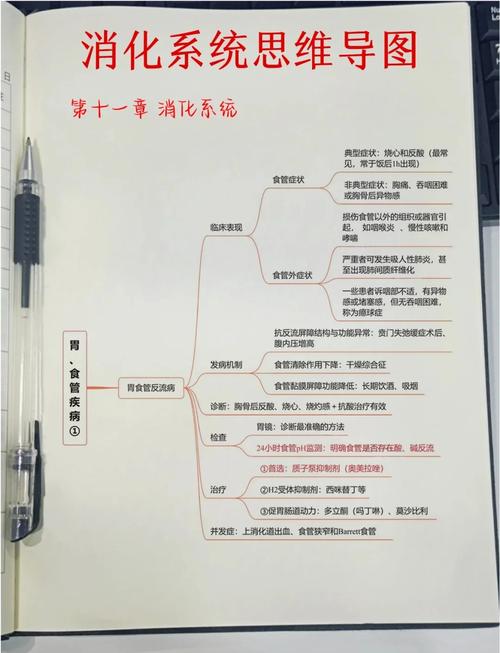 消化系统思维导图
第十一章 消化系统
日
胃、食管疾病①
胃食管反流病
临床表现
食管症状
典型症状：烧心和反酸（最常
见，常于饭后1h出现）
非典型症状：胸痛、吞咽困难
或胸骨后异物感
食管外症状
损伤食管以外的组织或器官引
起，如咽喉炎 、慢性咳嗽和
哮喘
严重者可发生吸人性肺炎，甚
至出现肺间质纤维化
一些患者诉咽部不适，有异物
感或堵塞感，但无吞咽困难，
称为癔球症
发病机制
抗反流屏障结构与功能异常：贲门失弛缓症术后、
腹内压增高
食管清除作用下降：干燥综合征
食管黏膜屏障功能降低：长期饮酒、吸烟
诊断：胸骨后反酸、烧心、烧灼感＋抗酸治疗有效
检查
胃镜：诊断最准确的方法
24小时食管pH监测：明确食管是否存在酸、碱反流
治疗
①首选：质子泵抑制剂（奥美拉唑）
②H2受体抑制剂：西咪替丁等
③促胃肠道动力：多立酮（吗丁啉）、莫沙比利
并发症：上消化道出血、食管狭窄和Barrett食管